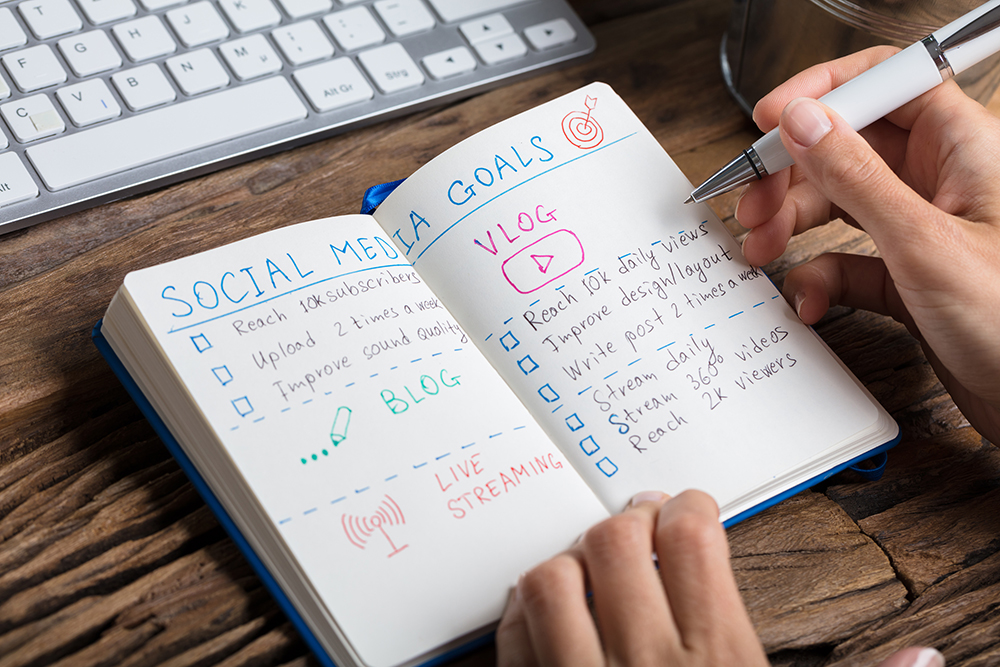 F G H J K
C V B N M
Alt Alt Gr Strg
SOCIAL MEDIA GOALS
Reach 10k subscribers
Upload 2 times a week
Improve sound Quality
BLOG
LIVE
STREAMING
VLOG
Reach 10k daily views
Improve design/layout
Write post 2 times a week
Stream daily
Stream 360° videos
Reach 2k viewers